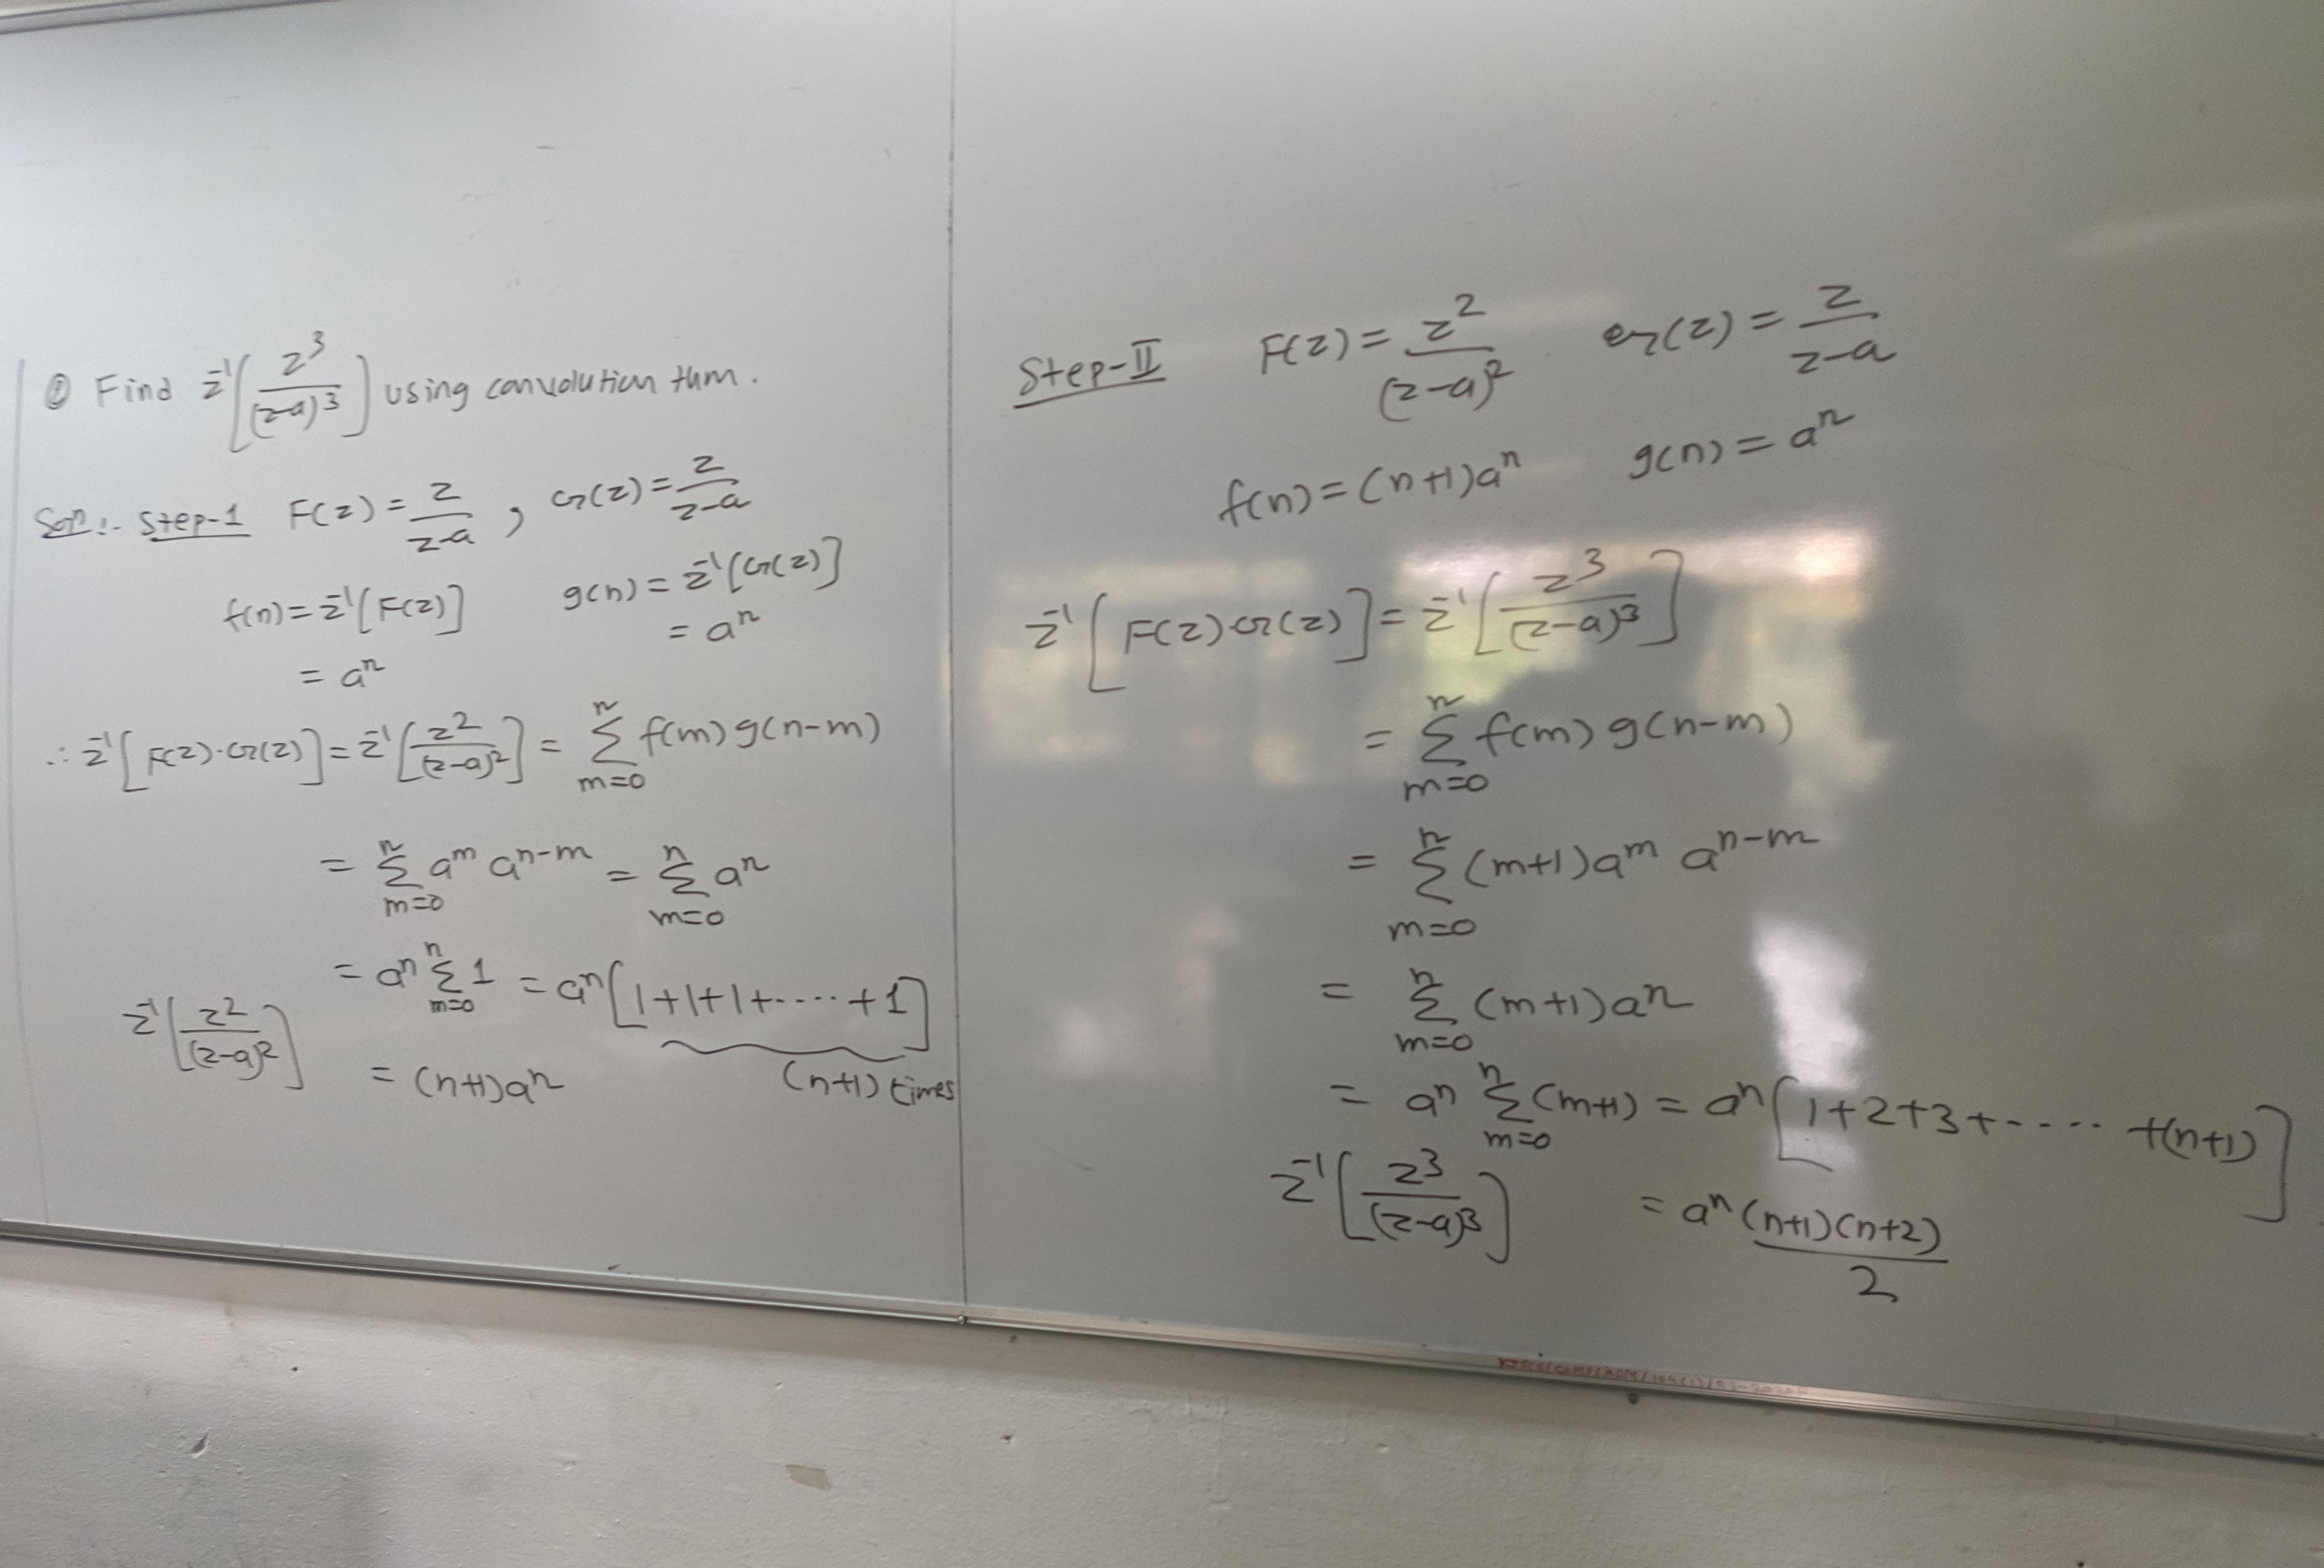 ① Find z⁻¹[z³/(z-a)³] using convolution thm.
Solⁿ:- Step-1 F(z) = z/(z-a) , G(z) = z/(z-a)
f(n) = z⁻¹[F(z)] g(n) = z⁻¹[G(z)]
= aⁿ = aⁿ
∴ z⁻¹[F(z)·G(z)] = z⁻¹[z²/(z-a)²] = Σ_{m=0}^{n} f(m) g(n-m)
= Σ_{m=0}^{n} aᵐ aⁿ⁻ᵐ = Σ_{m=0}^{n} aⁿ
= aⁿ Σ_{m=0}^{n} 1 = aⁿ[1+1+1+.....+1]
(n+1) times
z⁻¹[z²/(z-a)²] = (n+1)aⁿ
Step-II F(z) = z²/(z-a)² G(z) = z/(z-a)
f(n) = (n+1)aⁿ g(n) = aⁿ
z⁻¹[F(z)·G(z)] = z⁻¹[z³/(z-a)³]
= Σ_{m=0}^{n} f(m) g(n-m)
= Σ_{m=0}^{n} (m+1)aᵐ aⁿ⁻ᵐ
= Σ_{m=0}^{n} (m+1)aⁿ
= aⁿ Σ_{m=0}^{n} (m+1) = aⁿ[1+2+3+..... +(n+1)]
z⁻¹[z³/(z-a)³] = aⁿ (n+1)(n+2)/2